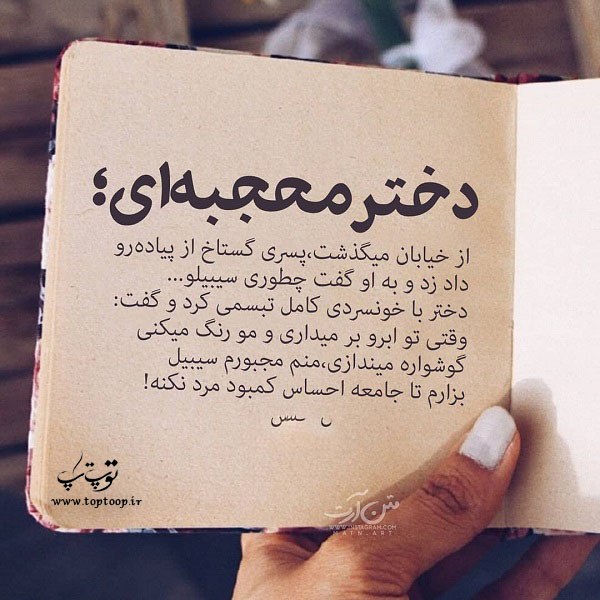 دختر محجبه‌ای؛
از خیابان میگذشت،پسری گستاخ از پیاده‌رو
داد زد و به او گفت چطوری سیبیلو...
دختر با خونسردی کامل تبسمی کرد و گفت:
وقتی تو ابرو بر میداری و مو رنگ میکنی
گوشواره میندازی،منم مجبورم سیبیل
بزارم تا جامعه احساس کمبود مرد نکنه!
توپ تاپ
www.toptoop.ir
متن آرت
WWW.INSTAGRAM.COM
MAIN.ART